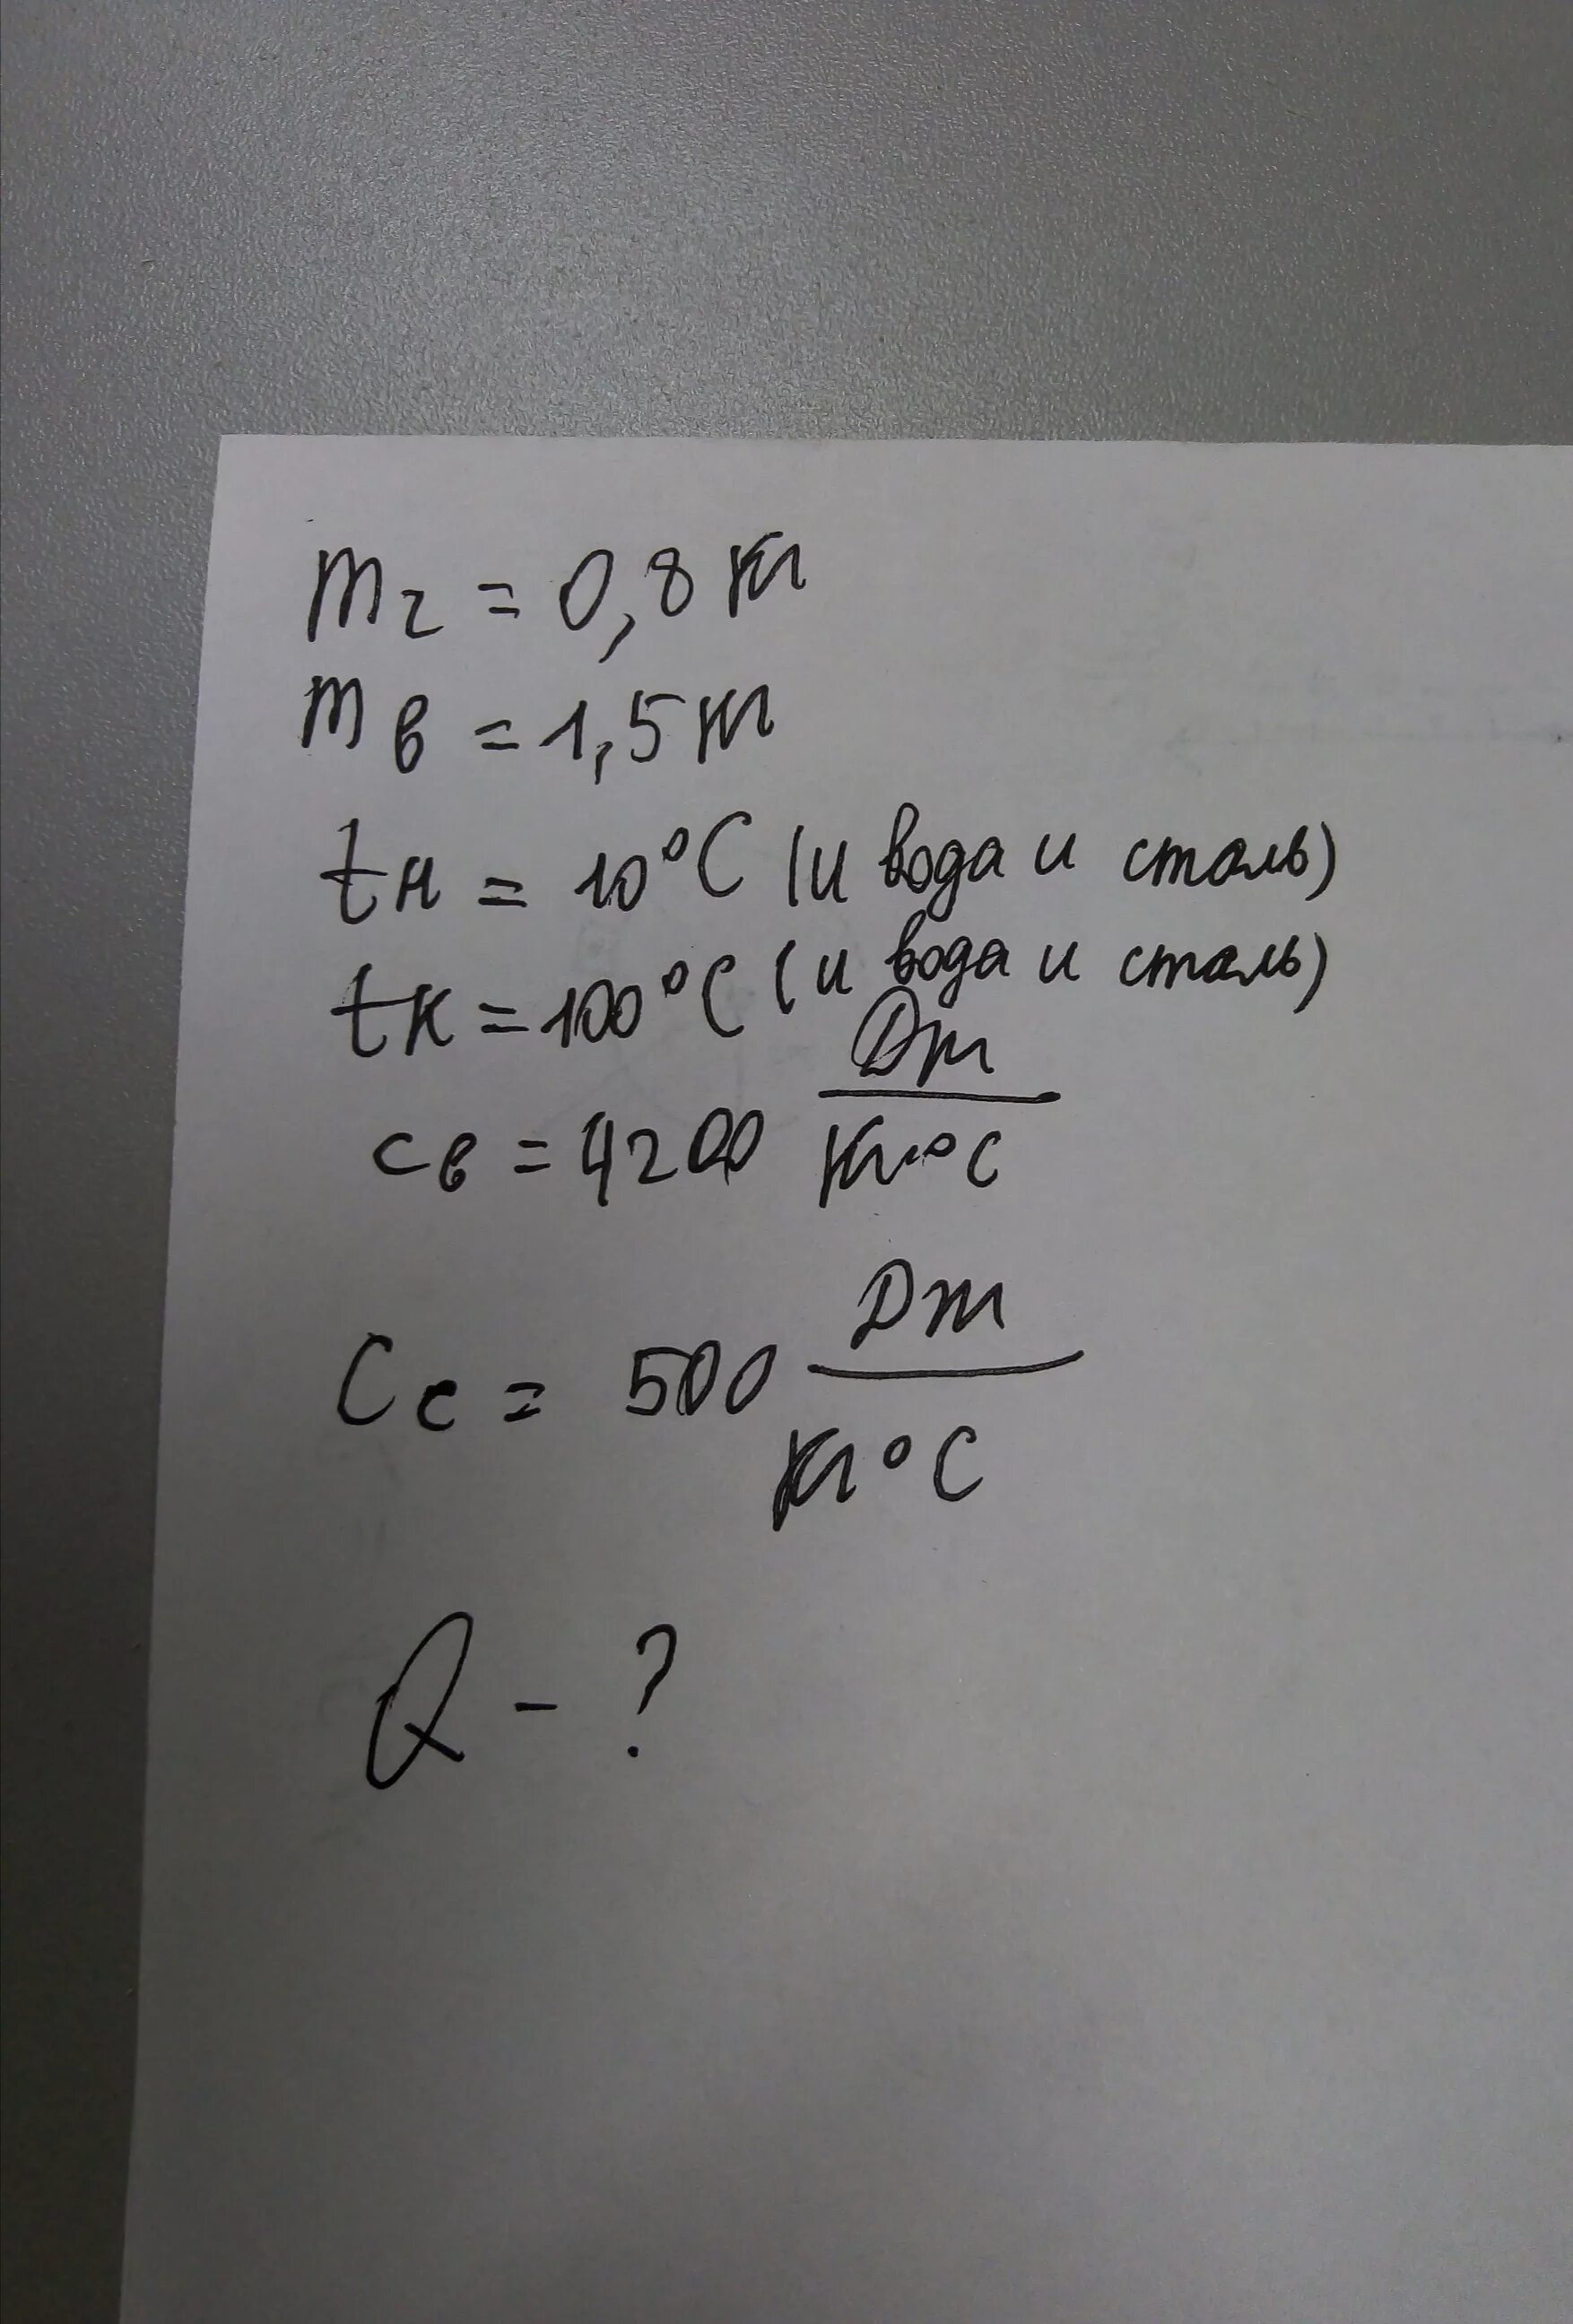 mг = 0,8 кг
mв = 1,5 кг
tн = 10°C (и вода и сталь)
tк = 100°C (и вода и сталь)
cв = 4200 Дж/кг·°C
Cс = 500 Дж/кг°C
Q - ?